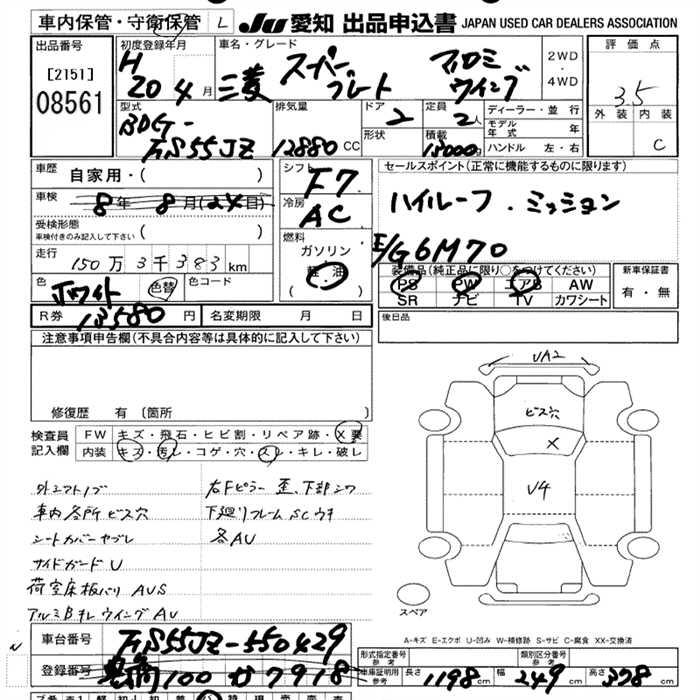 車内保管・守衛保管 L JU 愛知 出品申込書 JAPAN USED CAR DEALERS ASSOCIATION
出品番号
[2151]
08561
初度登録年月
H 20 4 月
車名・グレード
三菱 スーパーグレート アルミウイング
2WD・4WD
評価点
3.5
外装 内装
C
型式
BDG-FS55JZ
排気量
12880 CC
ドア
2
形状
定員
2人
積載
13000
ディーラー・並行
モデル年式 年
ハンドル 左・右
車歴
自家用・( )
車検
8年 8月(24日)
受検形態
車検付きのみ記入して下さい ( )
走行
150万3千383km
色
ホワイト 色替
色コード
R券 13580 円
名変期限 月 日
シフト
F7
冷房
AC
燃料
ガソリン
軽油
( )
セールスポイント(正常に機能するものに限ります)
ハイルーフ . ミッション
E/G 6M70
装備品(純正品に限り○をつけてください)
PS PW エアB AW
SR ナビ TV カワシート
新車保証書
有・無
後日品
注意事項申告欄(不具合内容等は具体的に記入して下さい)
修復歴 有 [箇所
検査員記入欄
FW キズ・飛石・ヒビ割・リペア跡・X要
内装 キズ・汚れ・コゲ・穴・スレ・キレ・破レ
外シフトノブ
車内各所ビス穴
シートカバーヤブレ
サイドガードU
荷室床板バリ AUS
アルミBキレ ウイング AU
右Fピラー歪、下部シワ
下廻りフレームSCウキ
各AU
UA2
ビス穴
X
V4
スペア
A-キズ E-エクボ U-凹み W-補修跡 S-サビ C-腐食 XX-交換済
N
車台番号
FS55JZ-550429
登録番号
100 か 7918
形式指定番号
参考
類別区分番号
参考
車庫証明用
参考
長さ 1198 cm 幅 249 cm 高さ 378 cm